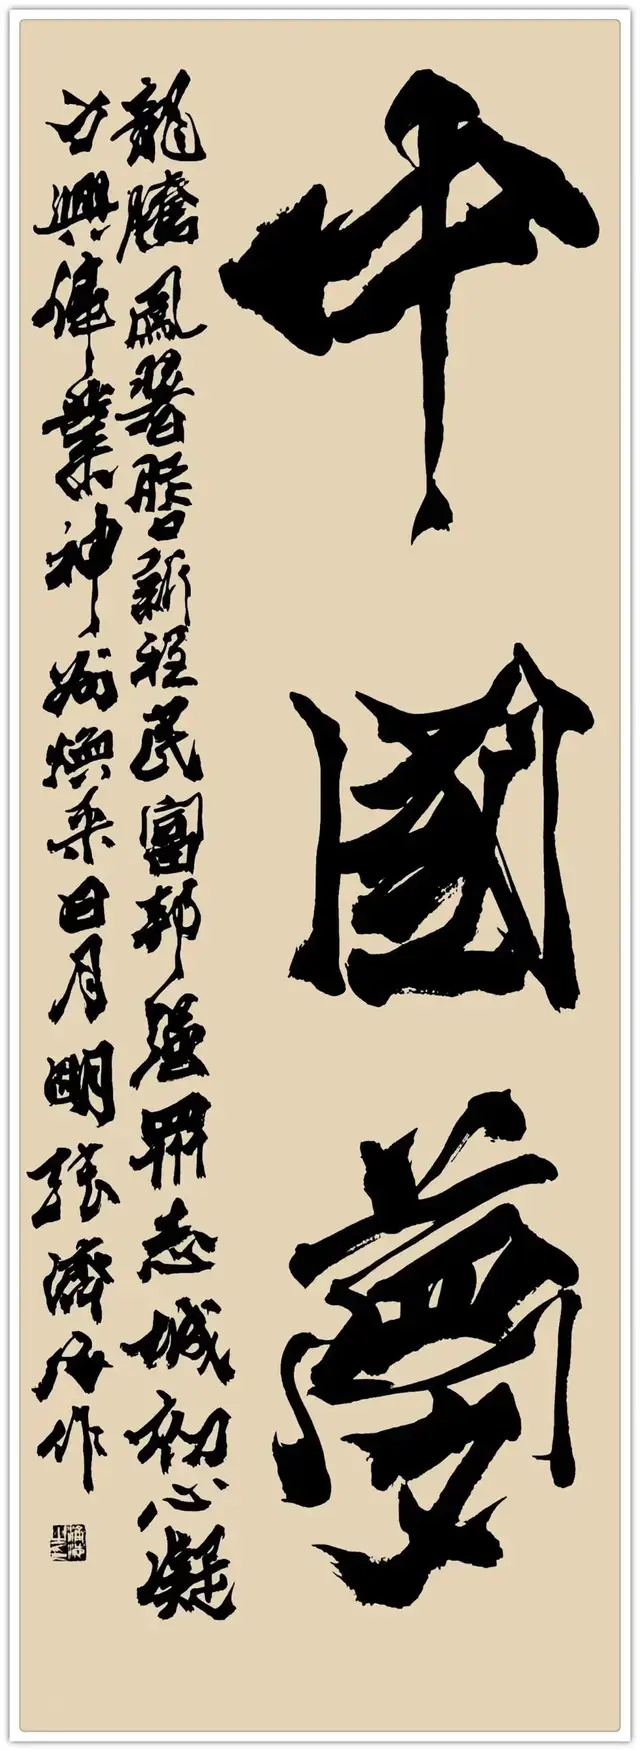 中國夢
龍騰鳳翥踏新程民富邦強眾志城初心凝
力興偉業神州煥采日月明張濟作